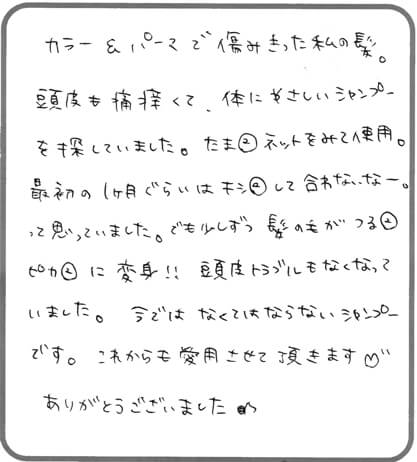 カラー&パーマで傷みきった私の髪。
頭皮も痛痒くて、体にやさしいシャンプー
を探していました。たま②ネットをみて使用。
最初の1ヶ月ぐらいはキシ②して合わないなー。
って思っていました。でも少しずつ髪の毛がつる②
ピカ②に変身!!頭皮トラブルもなくなって
いました。今ではなくてはならないシャンプー
です。これからも愛用させて頂きます♡"
ありがとうございました